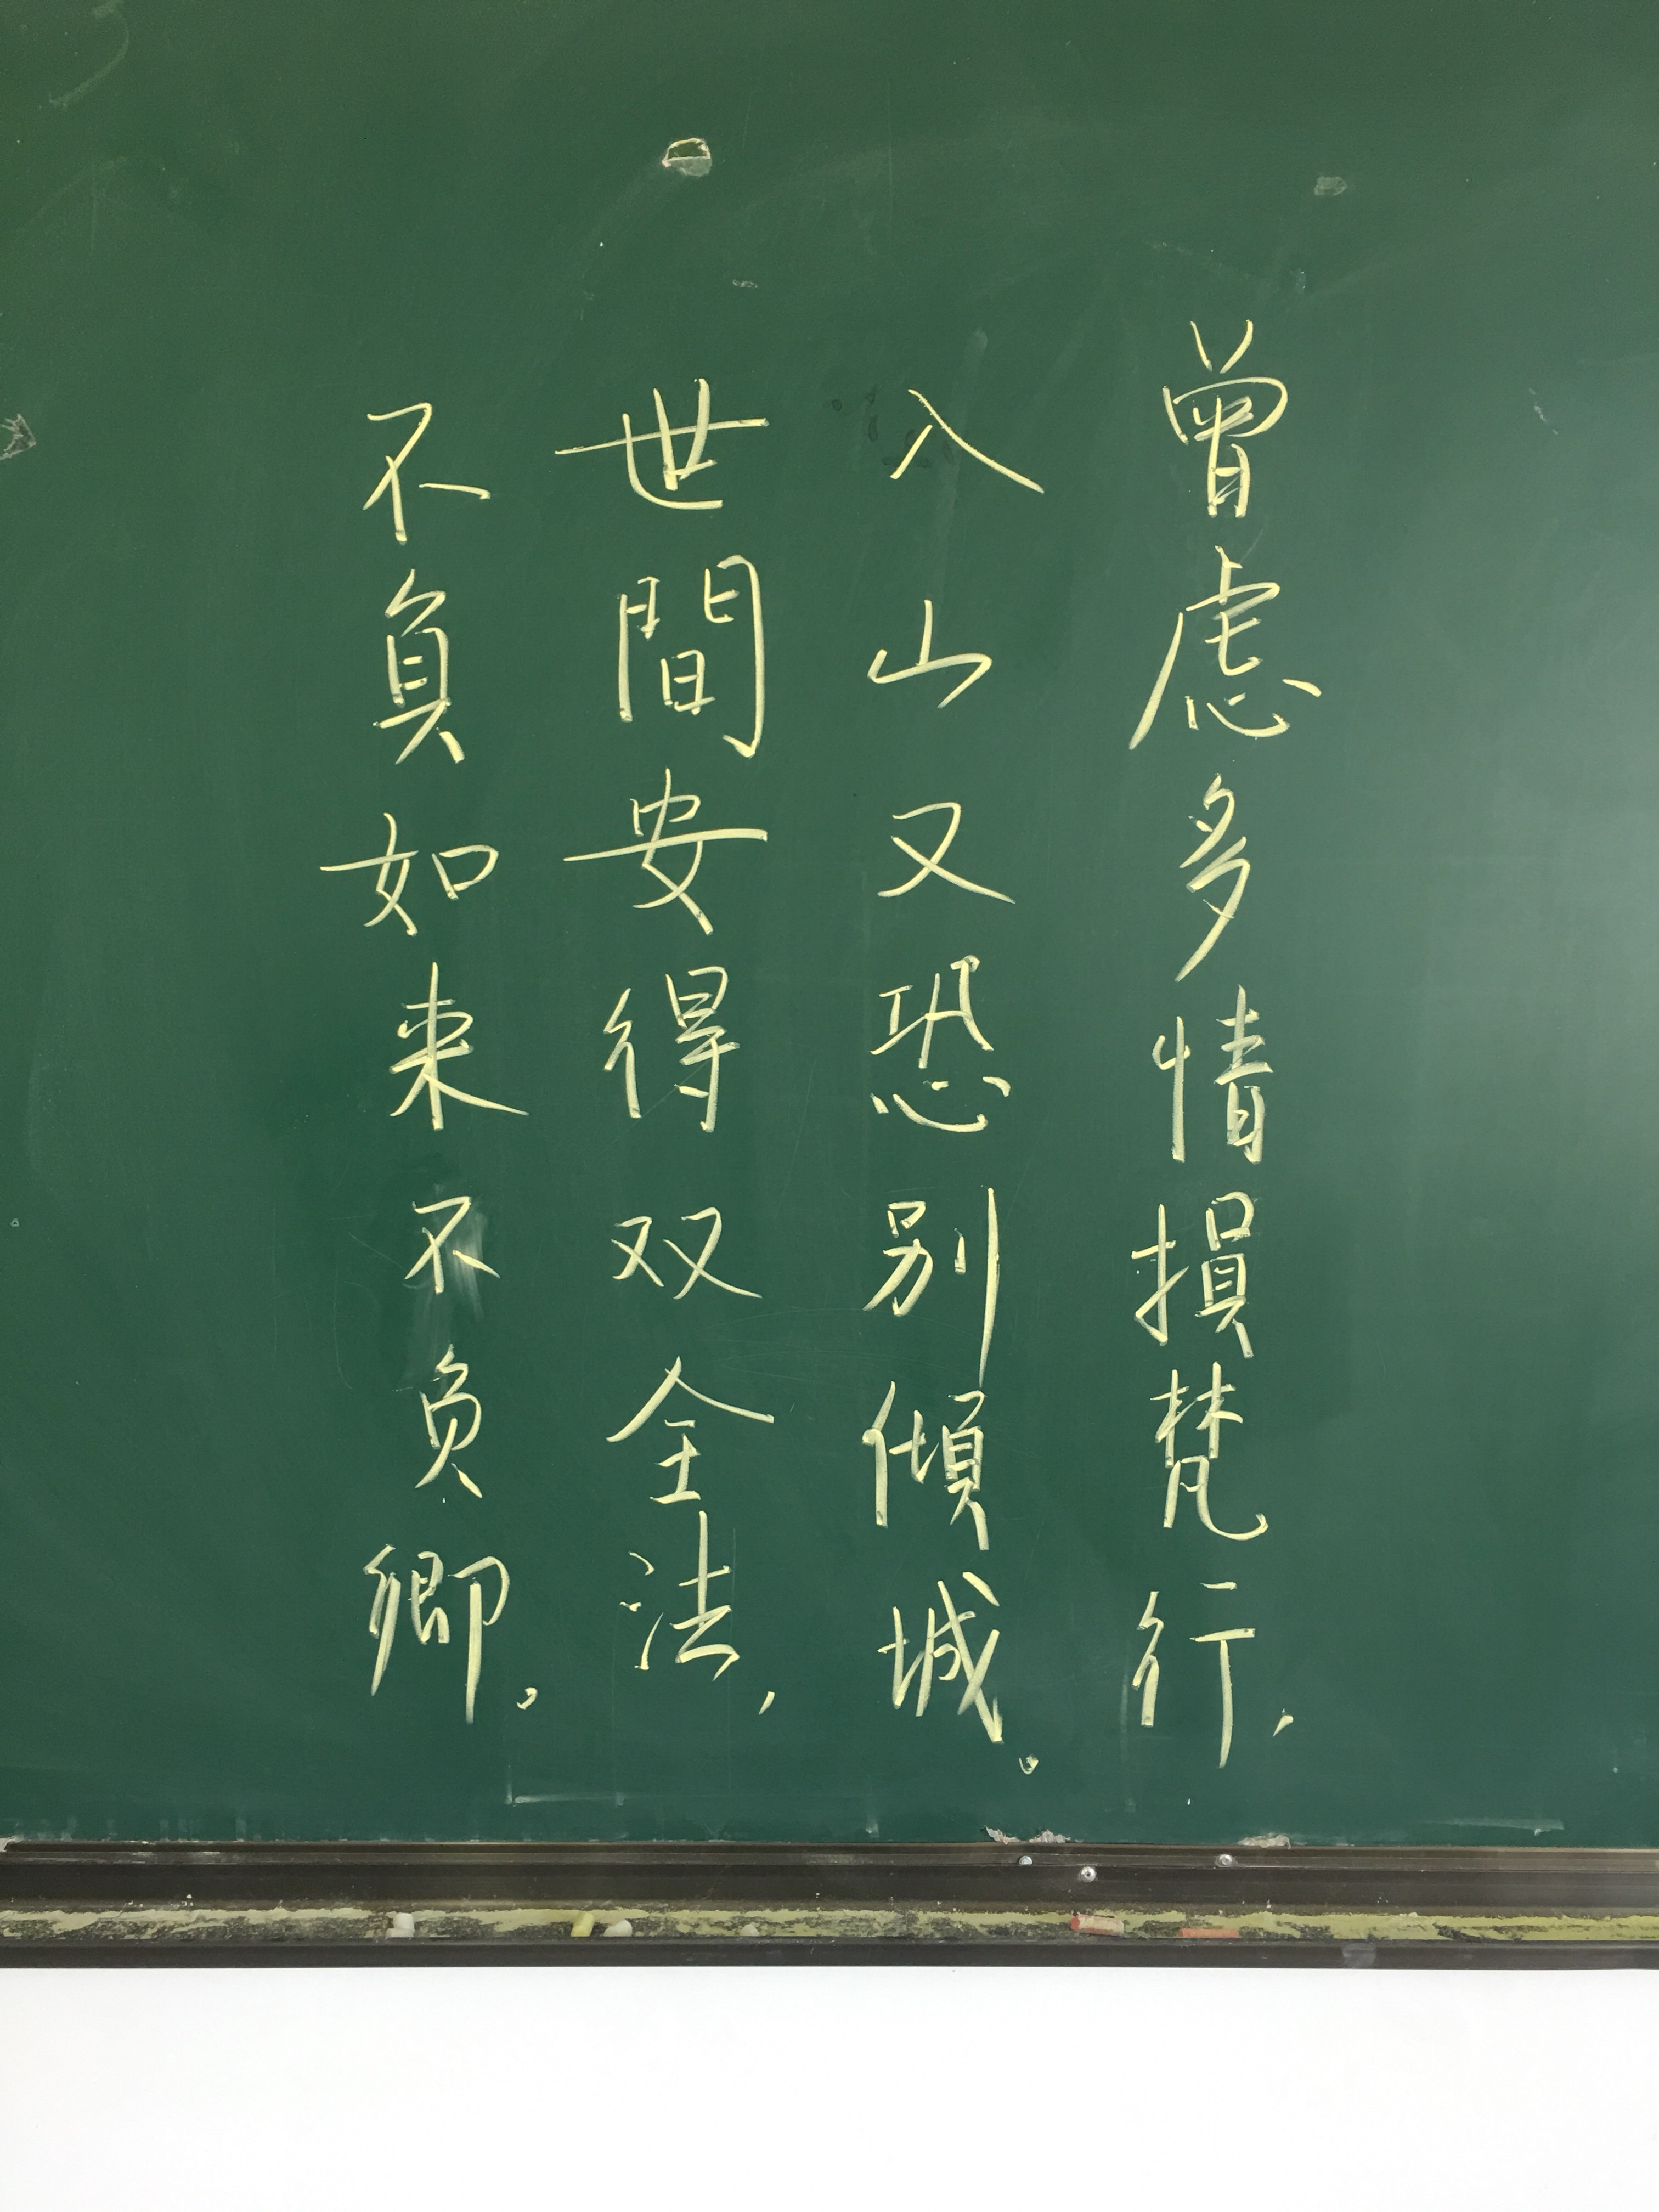 曾虑多情損梵行，
入山又恐别傾城。
世間安得双全法，
不負如来不负卿。